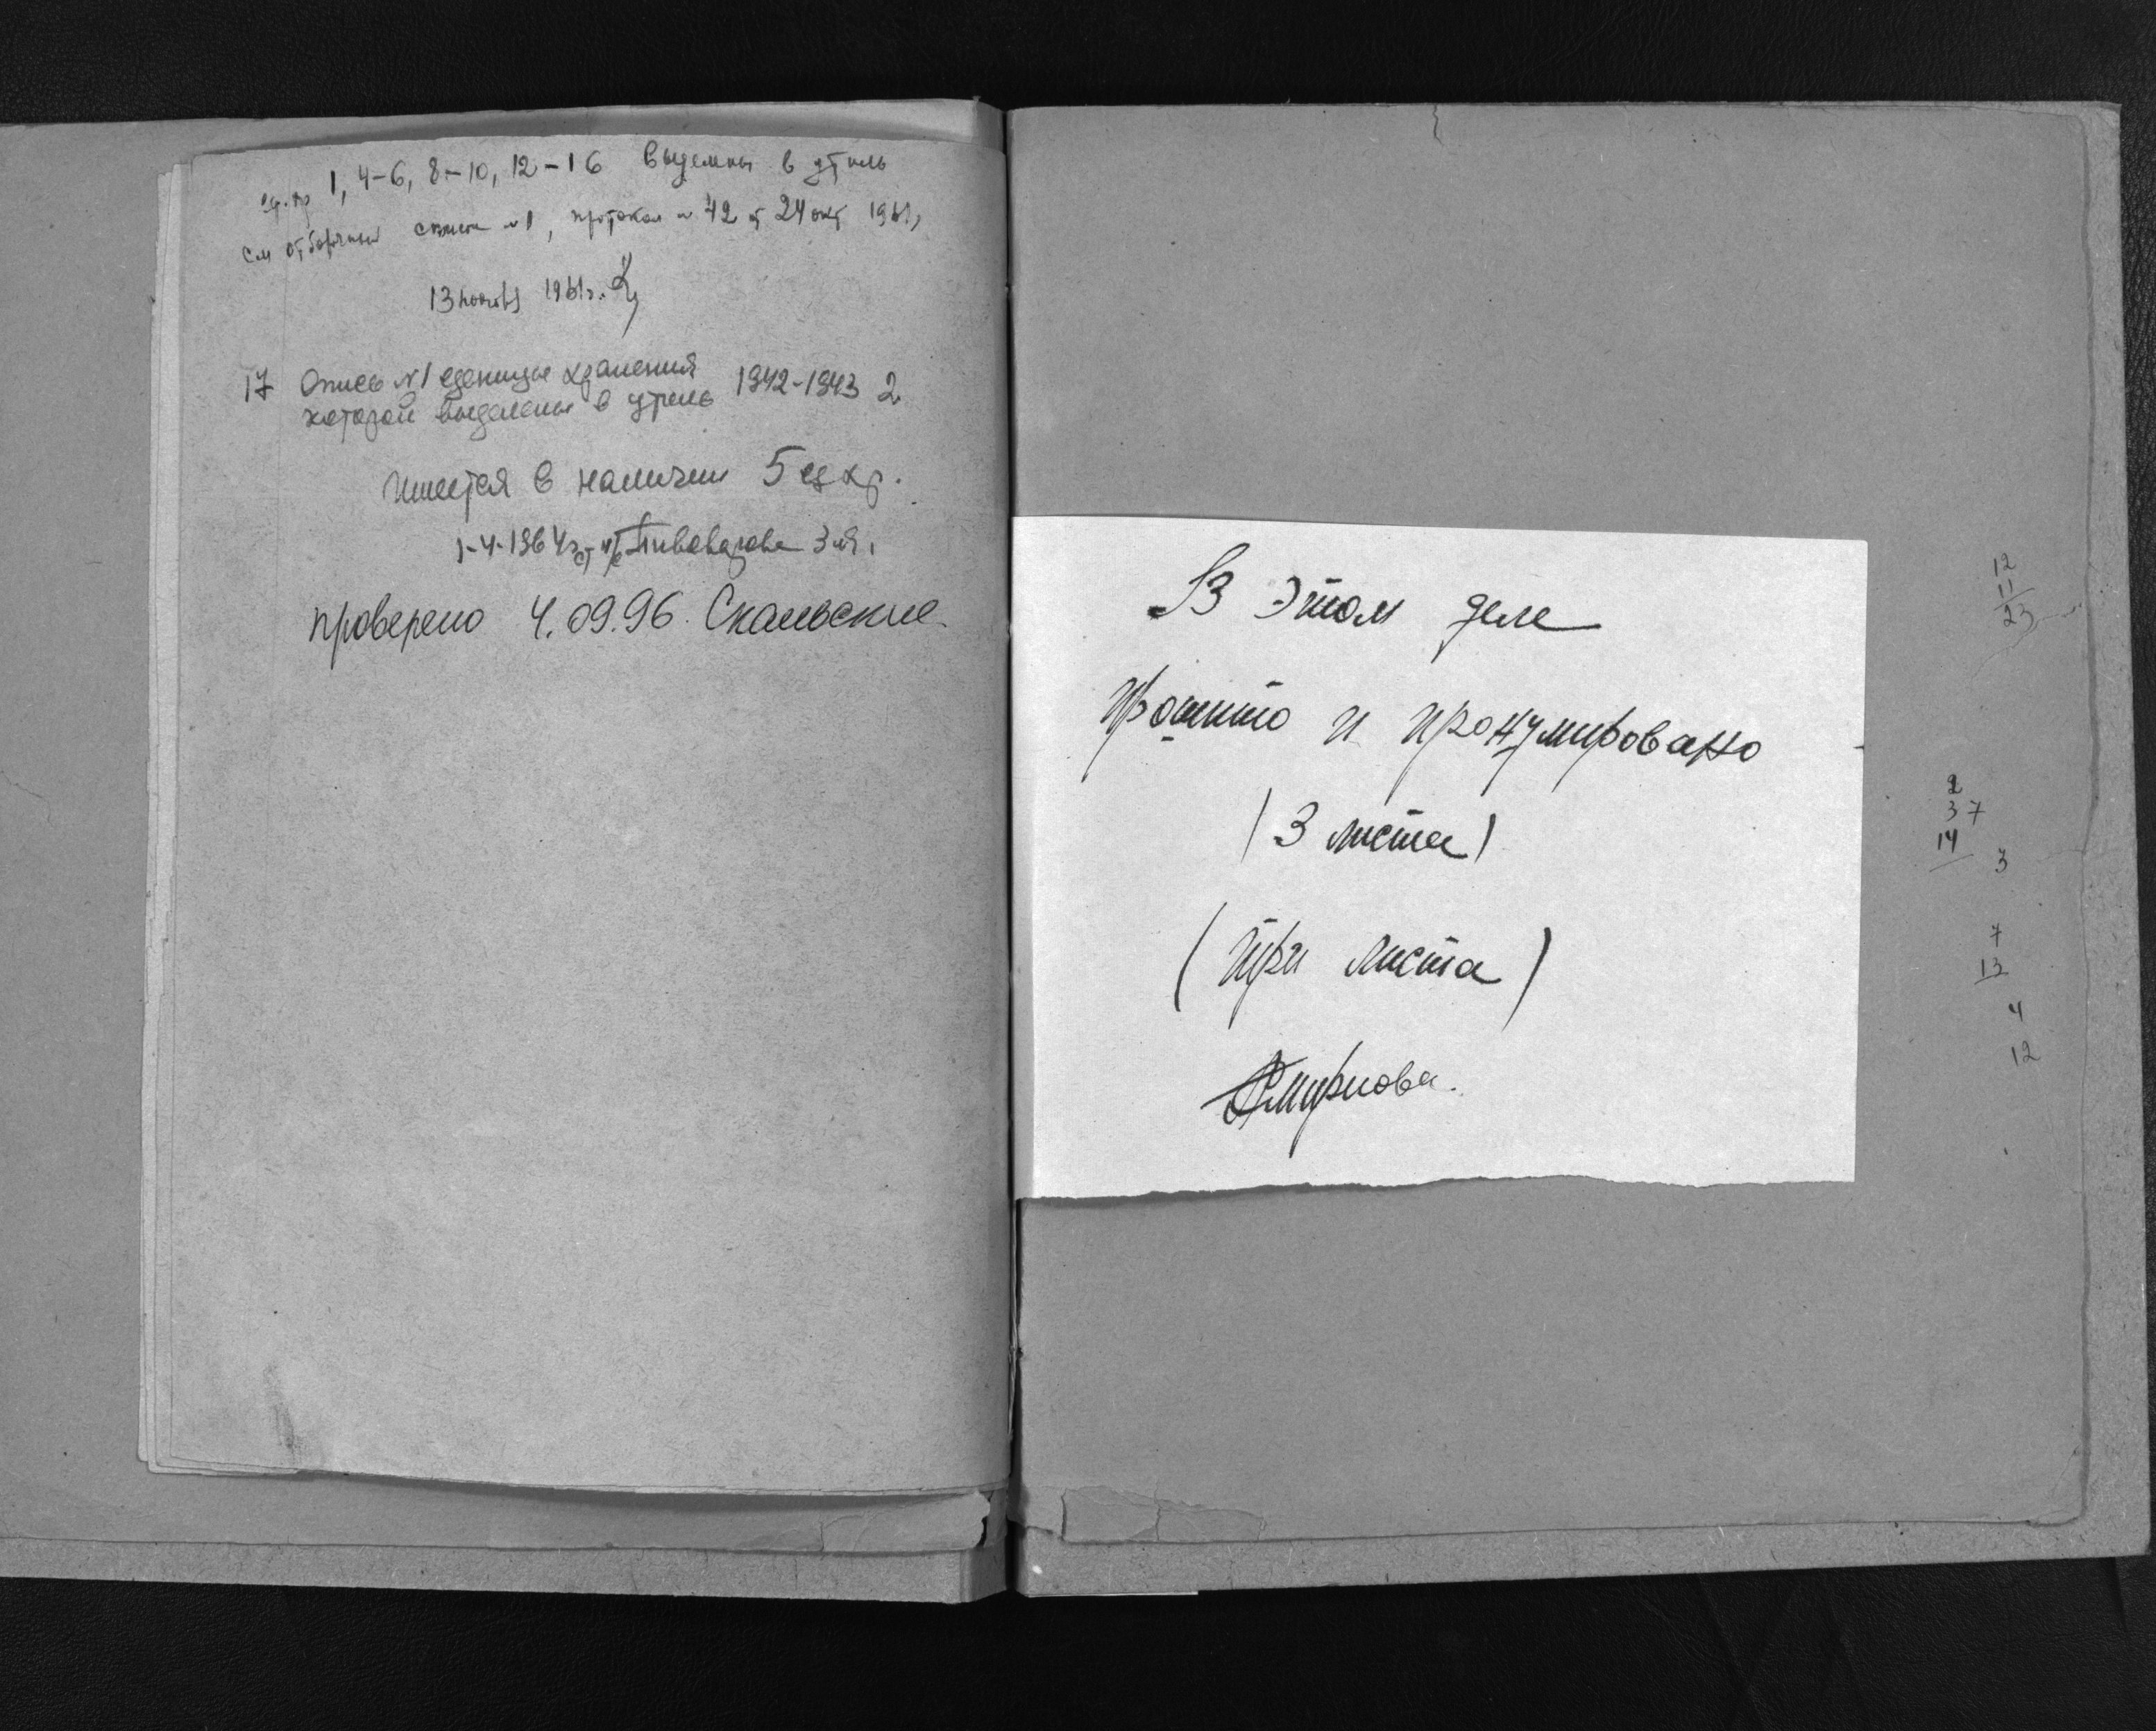 ед. хр 1, 4-6, 8-10, 12-16 выделены в утиль
см отборочный список №1, протокол № 42 от 24 окт 1961г
13 ноября 1961г.
17 Опись №1 еденицы хранения 1942-1943 2
которой выделены в утиль
Имеется в наличии 5 ед хр.
1-4-1964г. ст Пивоварова
проверено 4.09.96. Скальские
В этом деле
прошито и пронумировано
(3 листа)
(три листа)
Смирнова.
12
11
23
2
37
14
3
7
13
4
12